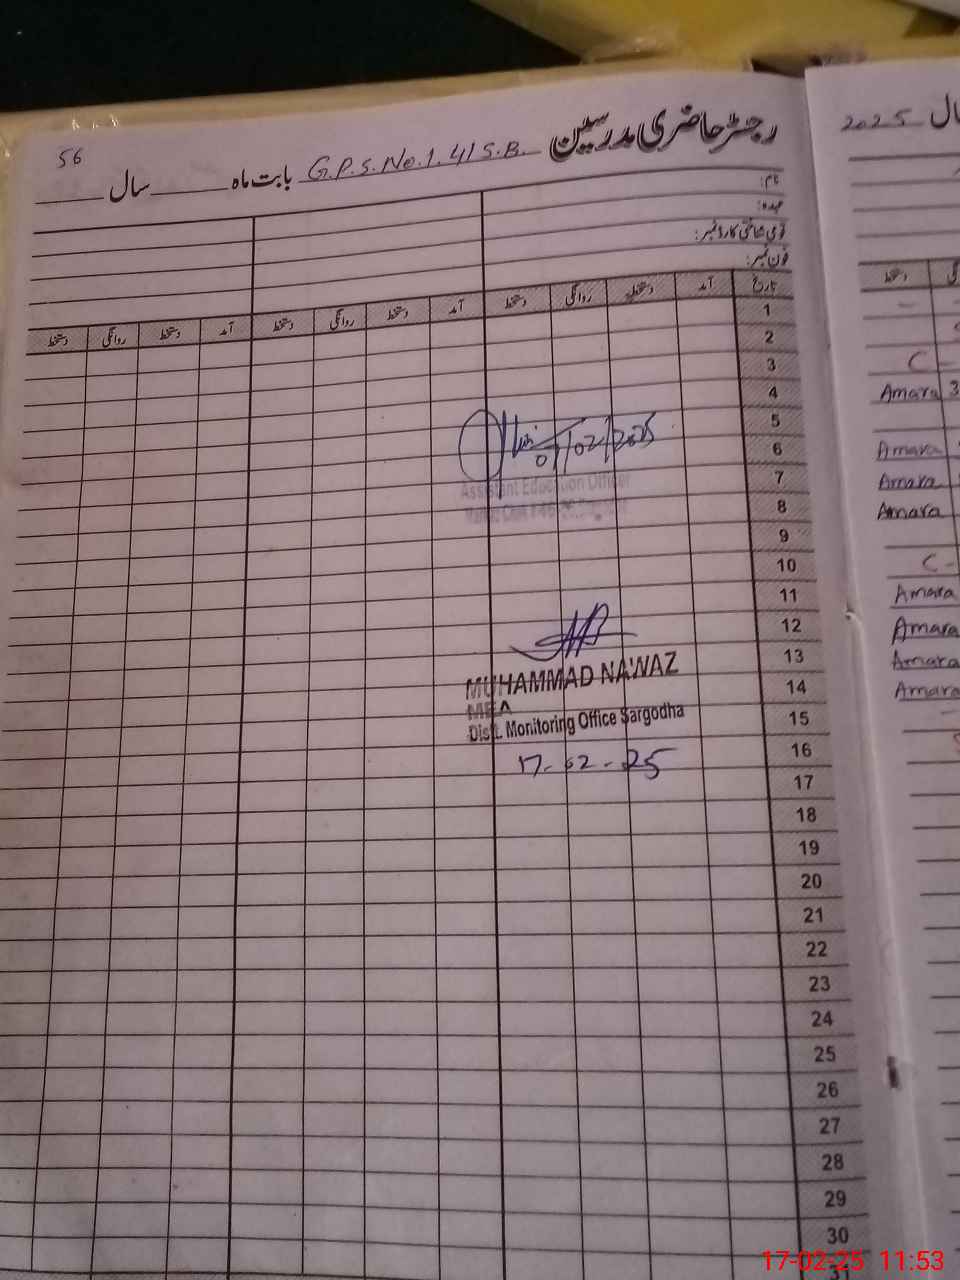 56
رجسٹر حاضری مدرسین G.P.S. No.1. 41 S.B. بابت ماہ ______ سال ______
نام:
عہدہ:
قومی شناختی کارڈ نمبر:
فون نمبر:
تاریخ آمد دستخط روانگی دستخط آمد دستخط روانگی دستخط آمد دستخط روانگی دستخط
1
2
3
4
5
6
7
8
9
10
11
12
13
14
15
16
17
18
19
20
21
22
23
24
25
26
27
28
29
30
31
/02/2025
Assistant Education Officer
MUHAMMAD NAWAZ
MEA
Distt. Monitoring Office Sargodha
17-02-25
سال 2025
دستخط
C-
Amara 3
Amara
Amara
Amara
C-
Amara
Amara
Amara
Amara
17-02-25 11:53